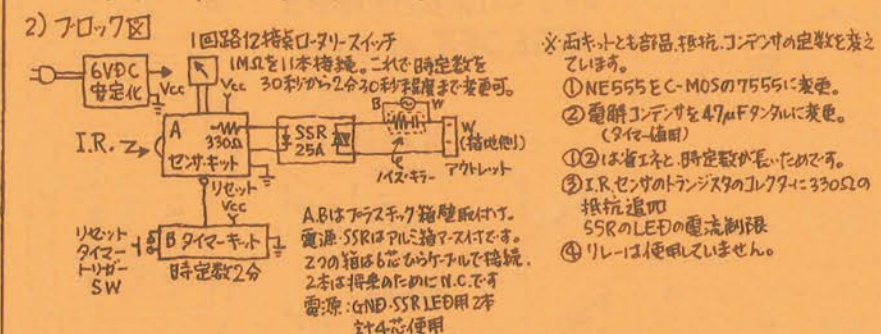 2) ブロック図
1回路12接点ロータリースイッチ
1MΩを11本接続。これで時定数を
30秒から2分30秒程度まで変更可。
6VDC
安定化
Vcc
Vcc
I.R.
A
330Ω
センサ・キット
SSR
25A
B
W
ノイズ・キラー
W
(接地側)
アウトレット
リセット
Vcc
リセット
タイマー
トリガー
SW
B タイマーキット
時定数2分
A.Bはプラスチック箱壁取付け。
電源・SSRはアルミ箱アース付です。
2つの箱は6芯ひらケーブルで接続。
2本は将来のためにN.C.です
電源:GND・SSR LED用2本
計4芯使用
※両キットとも部品、抵抗、コンデンサの定数を変え
ています。
①NE555をC-MOSの7555に変更。
②電解コンデンサを47μFタンタルに変更。
(タイマー値用)
①②は省エネと、時定数が長いためです。
③I.R.センサのトランジスタのコレクターに330Ωの
抵抗追加
SSRのLEDの電流制限
④リレーは使用していません。